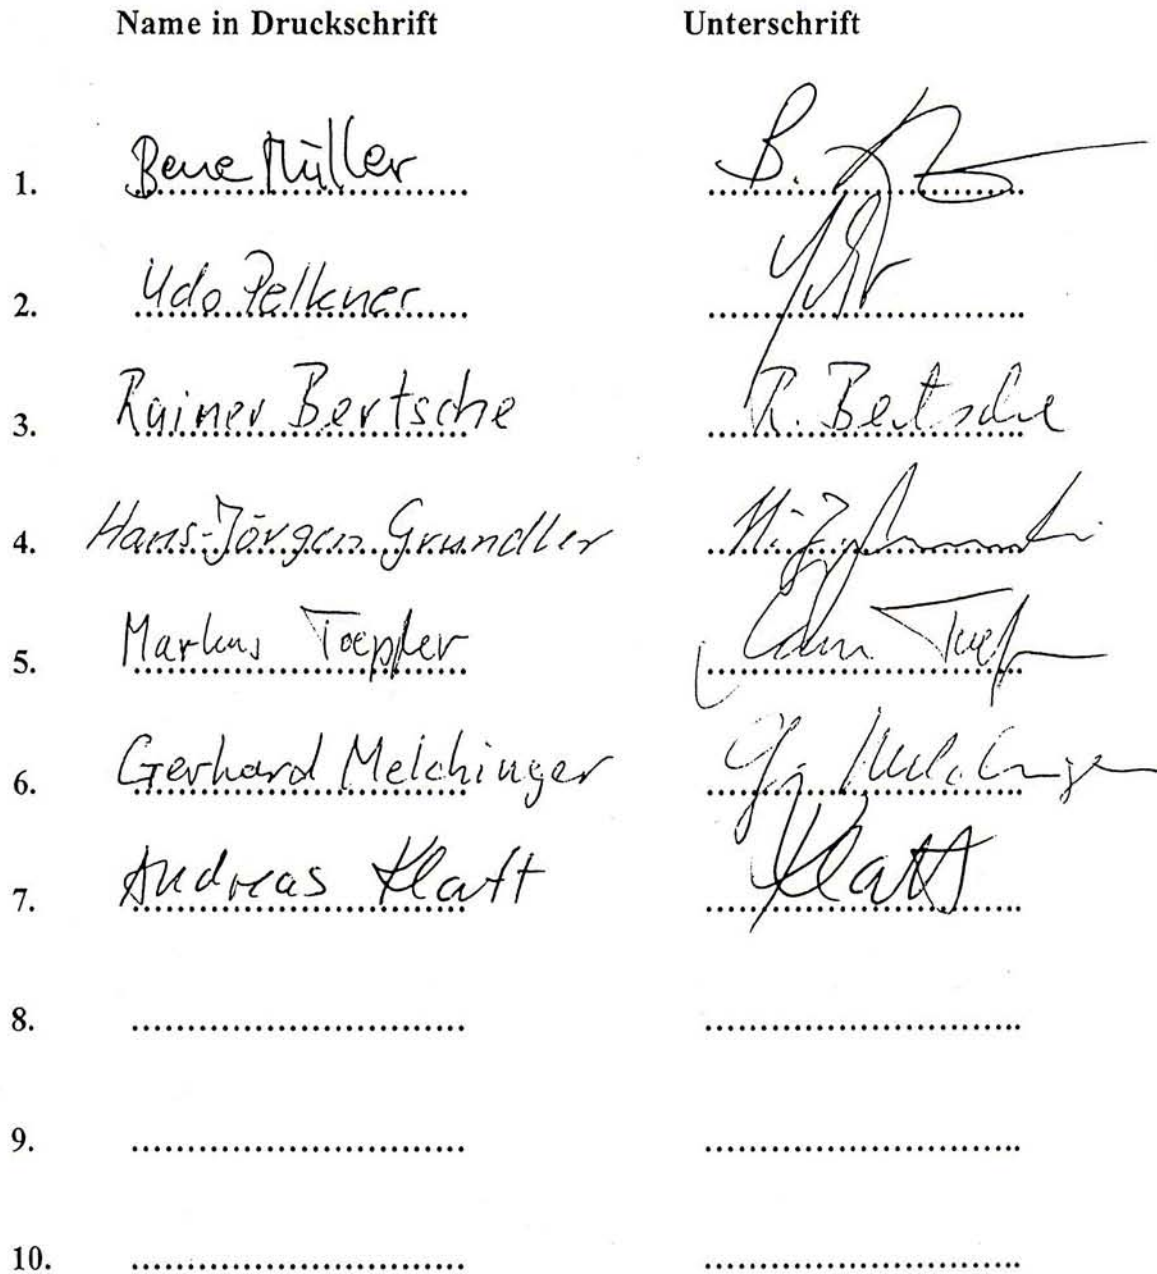 Name in Druckschrift Unterschrift
1. Bene Müller B.
2. Udo Pelkner
3. Rainer Bertsche R. Bertsche
4. Hans-Jörgen Grundler H.-J.
5. Markus Toepfer
6. Gerhard Melchinger Melchinger
7. Andreas Klatt Klatt
8.
9.
10.